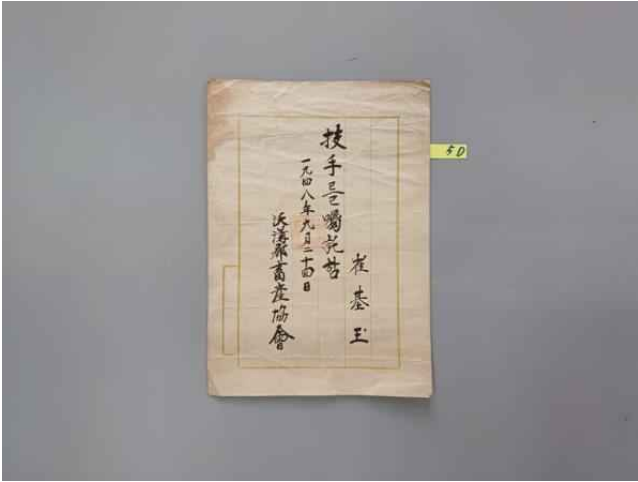 崔基玉
技手를囑託함
一九四八年九月二十四日
沃溝郡畜産協會
50